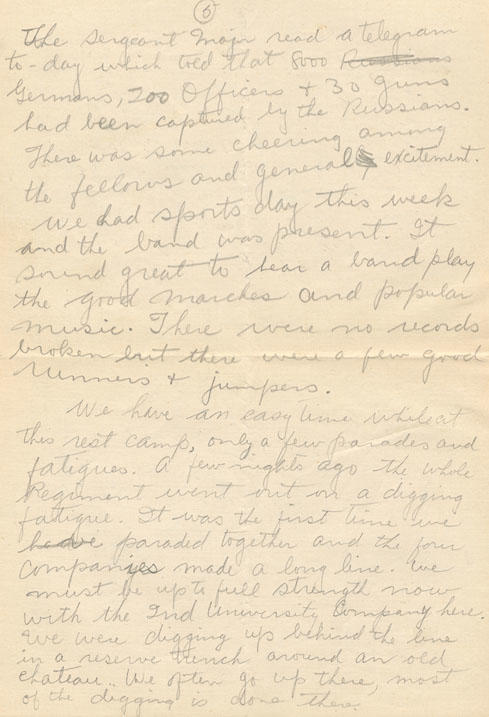 5
The Sergeant Major read a telegram
to-day which told that 8000 Russians
Germans, 200 Officers + 30 guns
had been captured by the Russians.
There was some cheering among
the fellows and general excitement.
We had sports day this week
and the band was present. It
sound great to hear a band play
the good marches and popular
music. There were no records
broken but there were a few good
runners + jumpers.
We have an easy time while at
this rest camp, only a few parades and
fatigues. A few nights ago the whole
Regiment went out on a digging
fatigue. It was the first time we
have paraded together and the four
companies made a long line. We
must be up to full strength now
with the 2nd University Company here.
We were digging up behind the line
in a reserve trench around an old
chateau. We often go up there, most
of the digging is done there.